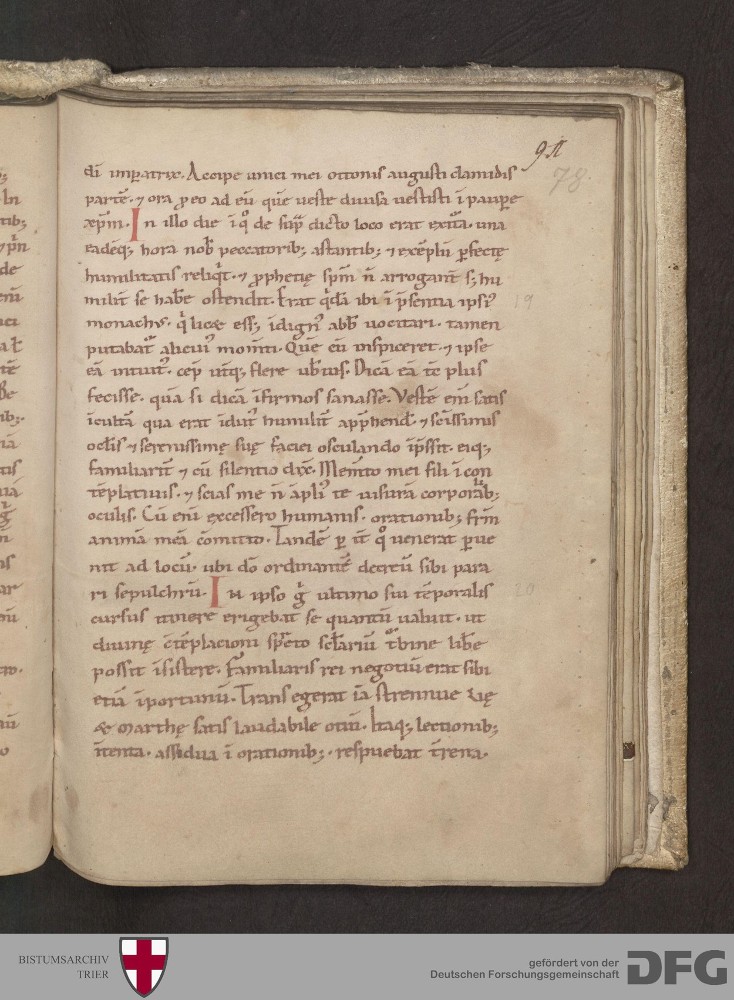 91
78.
dī imꝑatrix. Accipe unici mei ottonis augusti clamidis
partē. ⁊ ora ꝓ eo ad eū quē ueste diuisa uestisti ī pauꝑe
xp̄m. In illo die ī qͦ de sup̄ dicto loco erat exitura. una
eadēq; hora nob̄ peccatorib; astantib; ⁊ exēplū ꝑfectę
humilitatis reliqt. ⁊ ꝓphetię sp̄m n̄ arrogant̄ s; hu
milit̄ se hab̄e ostendit. Erat qdā ibi ī p̄sentia ipsiꝰ
monachꝰ. q licet ess; īdignꝰ abb̄ uocitari. tamen
putabat᷑ alicuiꝰ mom̄ti. Quē cū inspiceret. ⁊ ipse
eā intuitꝰ. cep̄ utq; flere ub̄tus. Dicā eā tc̄ plus
fecisse. quā si dicā īfirmos sanasse. Vestē em̄ satis
īcultā qua erat īdutꝰ humilit̄ app̄hend̄. ⁊ sc̄issimis
oc̄lis ⁊ serenissimę suę faciei osculando īp̄ssit. eiq;
familiarit̄ ⁊ cū silentio dix̄. Mem̄to mei fili ī con
tēplatiuis. ⁊ scias me n̄ āpliꝰ te uisurā corporalib;
oculis. Cū eni excessero humanis. orationib; fr̄m
animā meā cōmitto. Tandē ꝑ it̄ qͦ uenerat ꝑue
nit ad locū. ubi dō ordinante decretū sibi para
ri sepulchrū. In ipso g̊ ultimo sui tēporalis
cursus itinere erigebat se quantū ualuit. ut
diuinę c̄tēplacioni sp̄eto sc̄lariū t᷑bine lib̄e
possit īsistere. Familiaris rei negotiū erat sibi
etiā īportunū. Transegerat iā strennue uię
& marthę satis laudabile otiū. Itaq; lectionib;
īntenta. assidua ī orationib;. respuebat t̄rena.
BISTUMSARCHIV
TRIER
gefördert von der
Deutschen Forschungsgemeinschaft
DFG